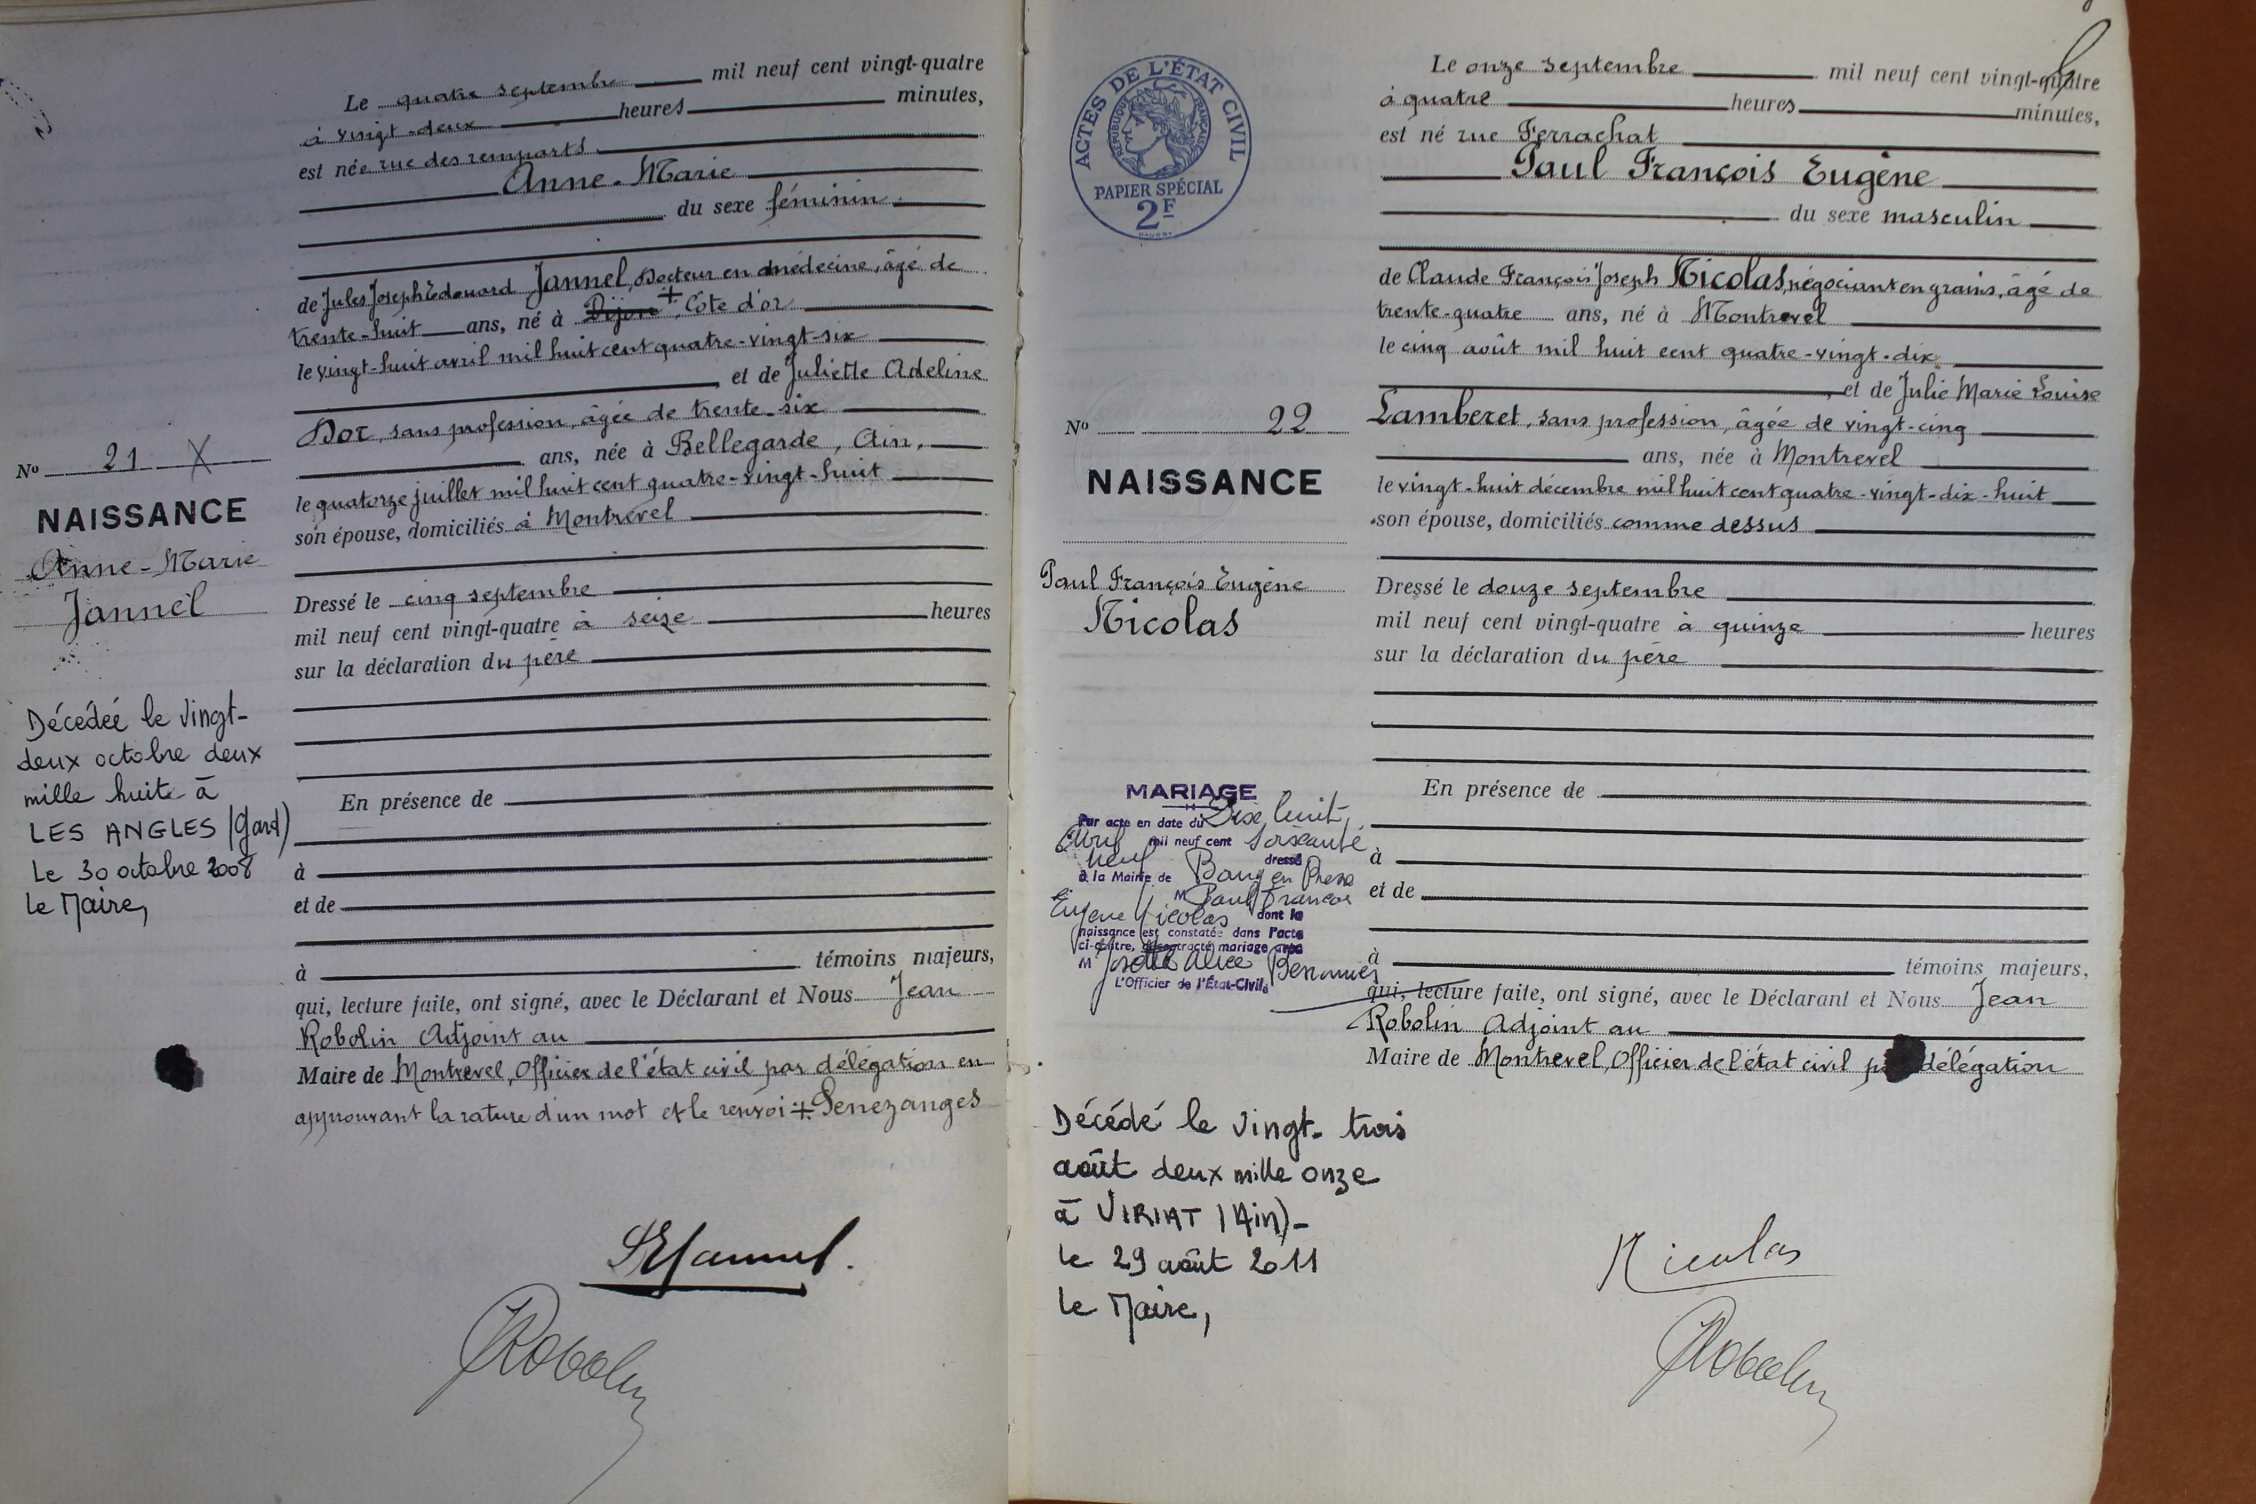 Le quatre septembre mil neuf cent vingt-quatre
à vingt-deux heures minutes,
est née rue des remparts
Anne-Marie
du sexe féminin
de Jules Joseph Edouard Jannel, Docteur en médecine, âgé de
trente-huit ans, né à Dijon + Côte d'or
le vingt-huit avril mil huit cent quatre-vingt-six
et de Juliette Adeline
Dor, sans profession, âgée de trente-six
ans, née à Bellegarde, Ain,
le quatorze juillet mil huit cent quatre-vingt-huit
son épouse, domiciliés à Montrevel
Dressé le cinq septembre
mil neuf cent vingt-quatre à seize heures
sur la déclaration du père
En présence de
à
et de
à témoins majeurs,
qui, lecture faite, ont signé, avec le Déclarant et Nous Jean
Robolin Adjoint au
Maire de Montrevel, Officier de l'état civil par délégation en
approuvant la rature d'un mot et le renvoi + Penezanges
Robolin
No 21 X
NAISSANCE
Anne-Marie
Jannel
Décédée le vingt-
deux octobre deux
mille huit à
LES ANGLES (Gard)
Le 30 octobre 2008
Le Maire,
ACTES DE L'ÉTAT CIVIL
RÉPUBLIQUE FRANÇAISE
PAPIER SPÉCIAL
2F
No 22
NAISSANCE
Paul François Eugène
Nicolas
MARIAGE
Par acte en date du Dix huit
Avril mil neuf cent soixante
neuf dressé
à la Mairie de Bourg en Bresse
M Paul François
Eugène Nicolas dont la
naissance est constatée dans l'acte
ci-contre, a contracté mariage avec
M Josette Alice
L'Officier de l'État-Civil,
Décédé le vingt-trois
août deux mille onze
à VIRIAT (Ain)-
le 29 août 2011
Le Maire,
Le onze septembre mil neuf cent vingt-quatre
à quatre heures minutes,
est né rue Ferrachat
Paul François Eugène
du sexe masculin
de Claude François Joseph Nicolas, négociant en grains, âgé de
trente-quatre ans, né à Montrevel
le cinq août mil huit cent quatre-vingt-dix
et de Julie Marie Louise
Lamberet, sans profession, âgée de vingt-cinq
ans, née à Montrevel
le vingt-huit décembre mil huit cent quatre-vingt-dix-huit
son épouse, domiciliés comme dessus
Dressé le douze septembre
mil neuf cent vingt-quatre à quinze heures
sur la déclaration du père
En présence de
à
et de
à témoins majeurs,
qui, lecture faite, ont signé, avec le Déclarant et Nous Jean
Robolin Adjoint au
Maire de Montrevel, Officier de l'état civil délégation
Nicolas
Robolin